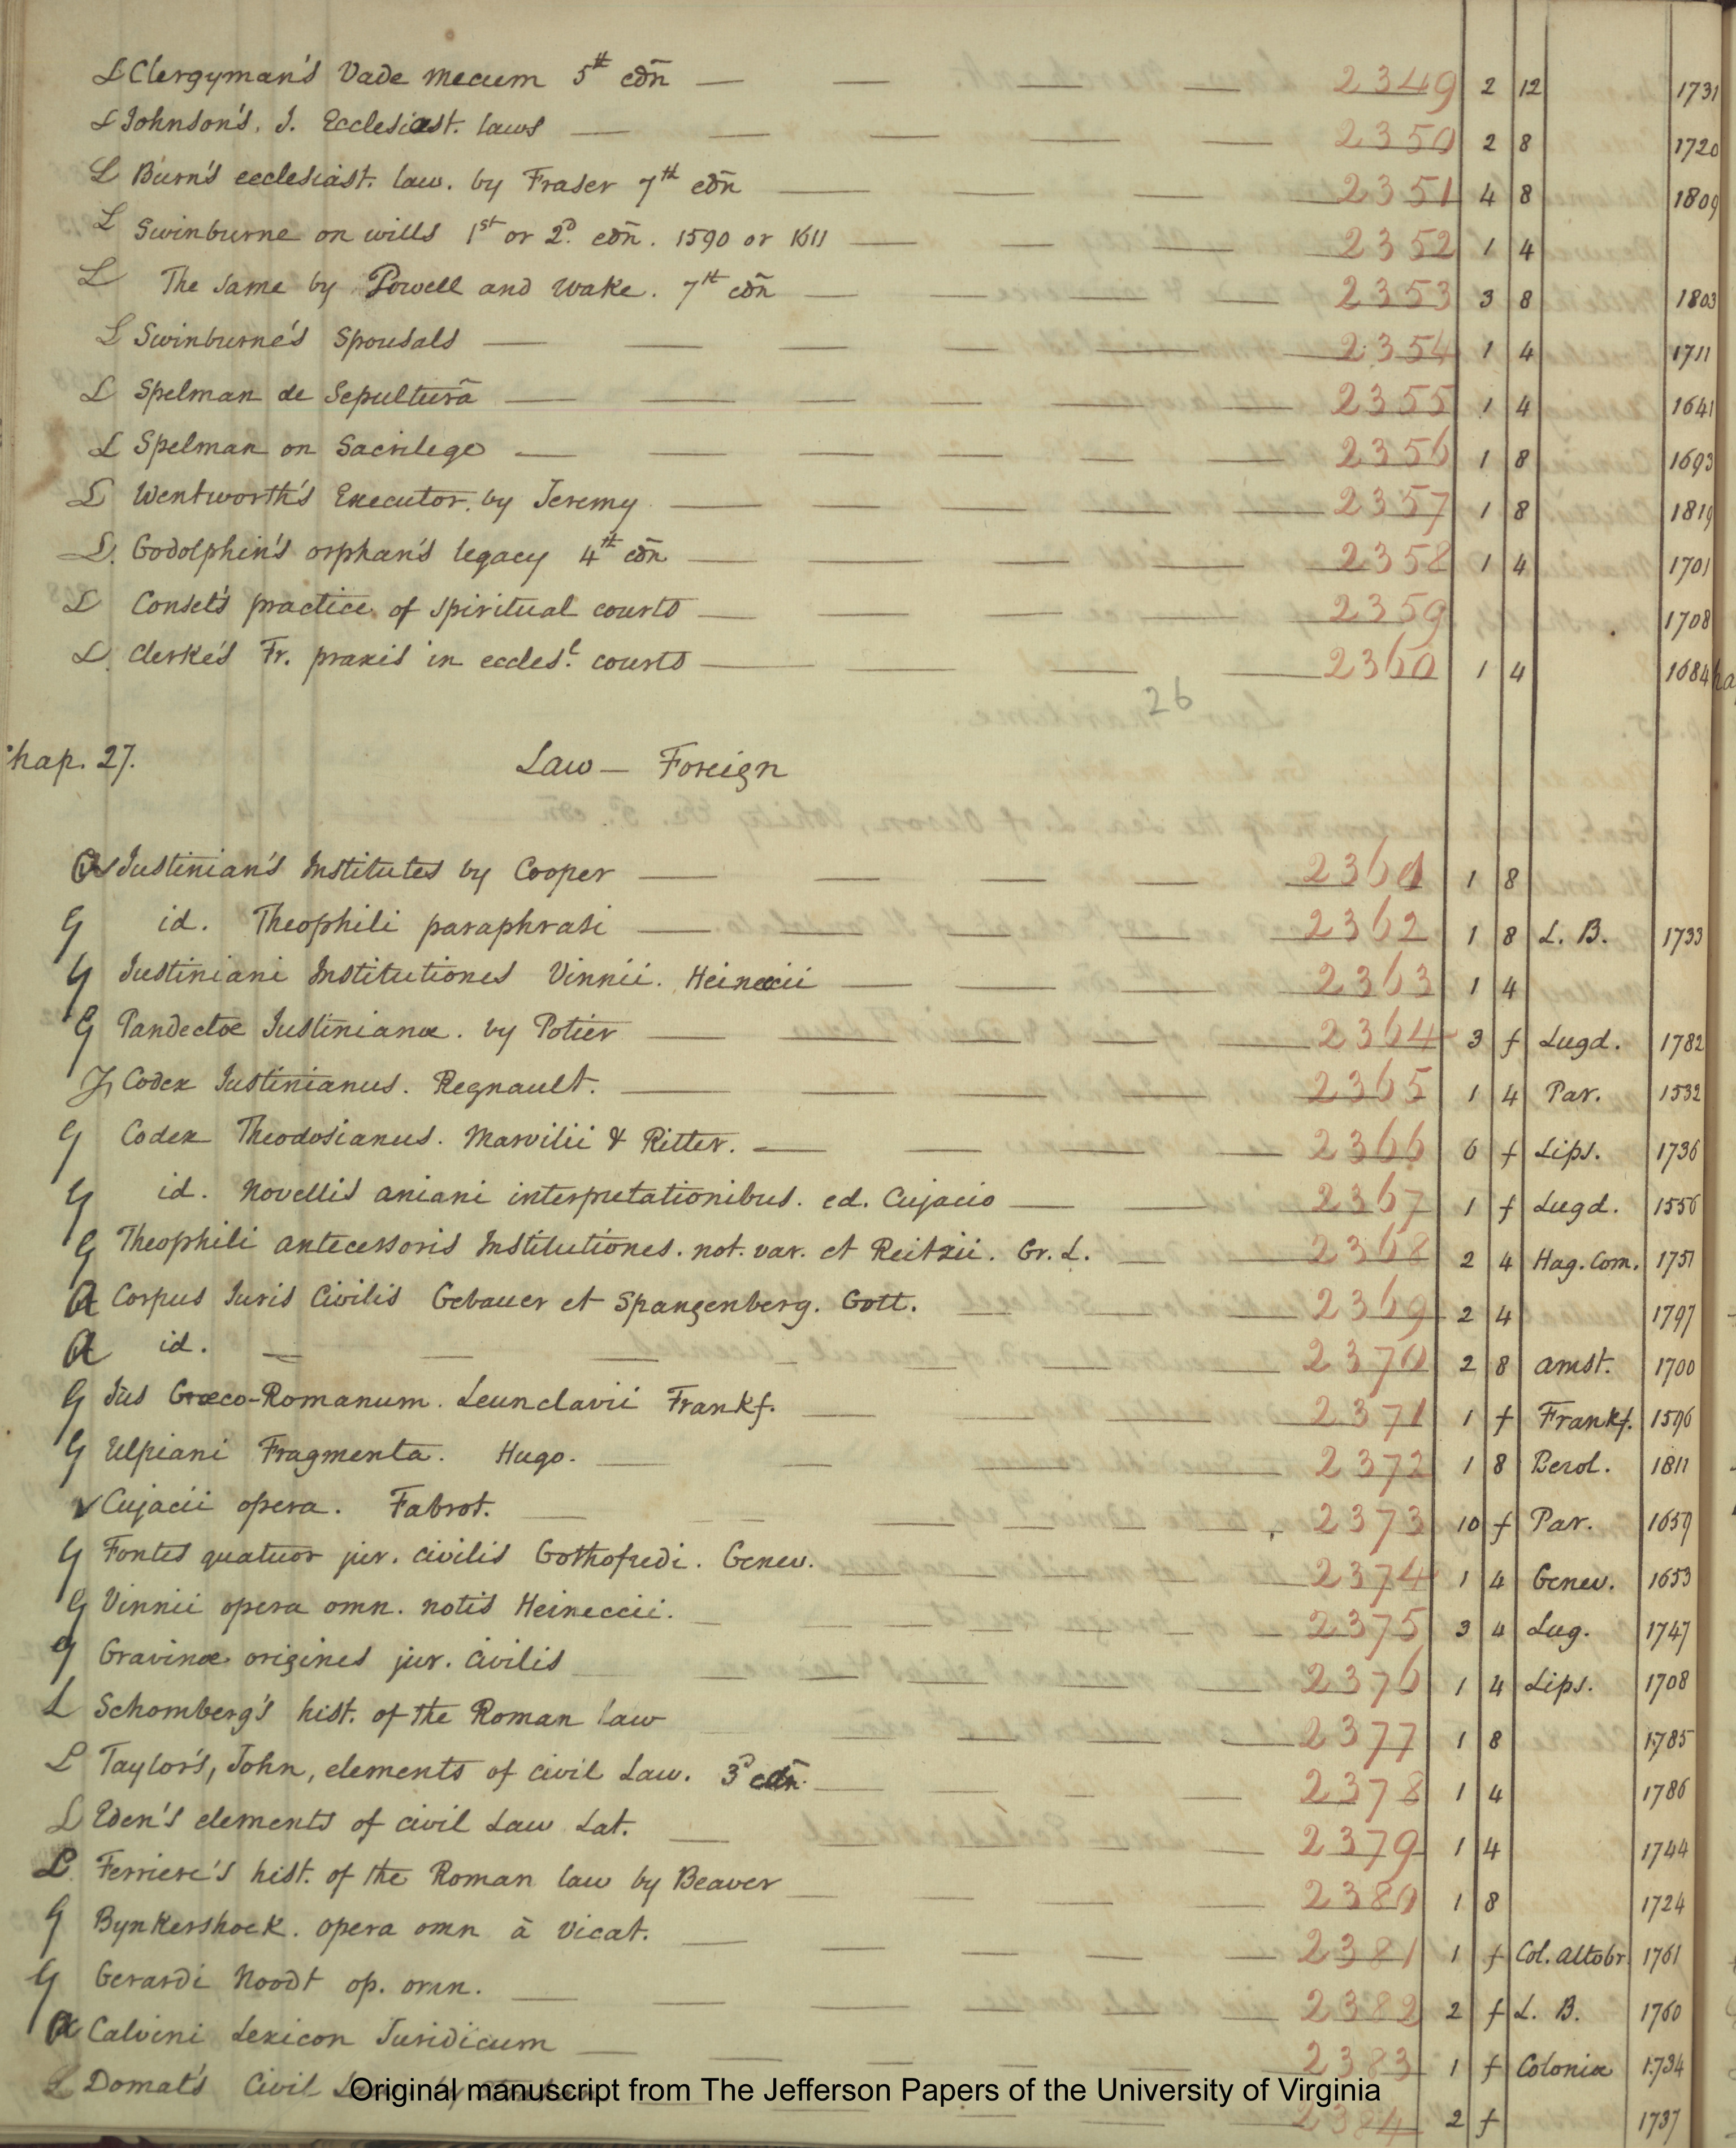 L Clergyman's Vade mecum 5th edn̄ — — — — 2349 2 12 1731
L Johnson's, J. Ecclesiast. laws — — — — — 2350 2 8 1720
L Burn's ecclesiast. law. by Fraser 7th edn̄ — — — — 2351 4 8 1809
L Swinburne on wills 1st or 2d. edn̄. 1590 or 1611 — — — — 2352 1 4
L The same by Powell and Wake. 7th edn̄ — — — — 2353 3 8 1803
L Swinburne's Spousals — — — — — — 2354 1 4 1711
L Spelman de Sepulturâ — — — — — — 2355 1 4 1641
L Spelman on Sacrilege — — — — — — 2356 1 8 1693
L Wentworth's Executor. by Jeremy — — — — — 2357 1 8 1819
L. Godolphin's orphan's legacy 4th edn̄ — — — — 2358 1 4 1701
L Conset's practice of spiritual courts — — — — 2359 1708
L. Clerke's Fr. praxis in eccles.l courts — — — — 2360 1 4 1684
26
Chap. 27. Law — Foreign
Justinian's Institutes by Cooper — — — — 2361 1 8
G id. Theophili paraphrasi — — — — 2362 1 8 L. B. 1733
G Justiniani Institutiones Vinnii. Heineccii — — — — 2363 1 4
G Pandectae Justinianae. by Potier — — — — 2364 3 f Lugd. 1782
Codex Justinianus. Regnault. — — — — 2365 1 4 Par. 1532
G Codex Theodosianus. Marvilii & Ritter. — — — — 2366 6 f Lips. 1736
G id. Novellis aniani interpretationibus. ed. Cujacio — — — 2367 1 f Lugd. 1556
G Theophili antecessoris Institutiones. not. var. et Reitzii. Gr. L. — — 2368 2 4 Hag. Com. 1751
A Corpus Juris Civilis Gebauer et Spangenberg. Gott. — — 2369 2 4 1797
A id. — — — — — — 2370 2 8 amst. 1700
G Jus Graeco-Romanum. Leunclavii Frankf. — — — — 2371 1 f Frankf. 1596
G Ulpiani Fragmenta. Hugo. — — — — 2372 1 8 Berol. 1811
✓ Cujacii opera. Fabrot. — — — — 2373 10 f Par. 1659
G Fontes quatuor jur. civilis Gothofredi. Genev. — — — 2374 1 4 Genev. 1653
G Vinnii opera omn. notis Heineccii. — — — — 2375 3 4 Lug. 1747
G Gravinae origines jur. civilis — — — — 2376 1 4 Lips. 1708
L Schomberg's hist. of the Roman law — — — — 2377 1 8 1785
L Taylor's, John, elements of civil Law. 3d edn̄. — — — — 2378 1 4 1786
L Eden's elements of civil Law Lat. — — — — 2379 1 4 1744
L. Ferriere's hist. of the Roman law by Beaver — — — — 2380 1 8 1724
G Bynkershoek. opera omn à Vicat. — — — — — 2381 1 f Col. allobr. 1761
G Gerardi Noodt op. omn. — — — — — 2382 2 f L. B. 1760
A Calvini Lexicon Juridicum — — — — — 2383 1 f Coloniae 1734
L Domat's Civil Law by — — — 2384 2 f 1737
Original manuscript from The Jefferson Papers of the University of Virginia